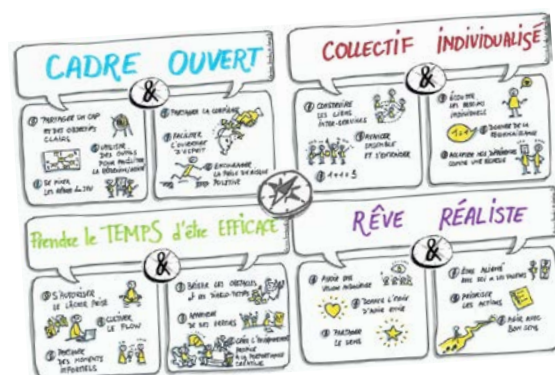 CADRE OUVERT
&
PARTAGER UN CAP
ET DES OBJECTIFS
CLAIRS
UTILISER
DES OUTILS
POUR FACILITER
DÉFINIR
LES RÈGLES DU JEU
PARTAGER LA CONFIANCE
FACILITER
L'OUVERTURE
D'ESPRIT
ENCOURAGER
LA PRISE DE RISQUE
POSITIVE
COLLECTIF INDIVIDUALISÉ
&
CONSTRUIRE
LES LIENS
INTER-SERVICES
AVANCER
ENSEMBLE
ET S'ENTRAIDER
1+1=3
ÉCOUTER
LES BESOINS
INDIVIDUELS
DONNER DE LA
RECONNAISSANCE
NOS DIFFÉRENCES
COMME UNE RICHESSE
Prendre le TEMPS d'être EFFICACE
&
S'AUTORISER
LE LÂCHER PRISE
CULTIVER
LE FLOW
PARTAGER
DES MOMENTS
INFORMELS
BRISER LES OBSTACLES
APPRENDRE
DE SES ERREURS
CRÉER L'ENVIRONNEMENT
PROPICE
À LA PERFORMANCE
CRÉATIVE
RÊVE RÉALISTE
&
AVOIR UNE
VISION
DONNER L'ENVIE
D'AVOIR ENVIE
PARTAGER
LE SENS
ÊTRE ALIGNÉ
AVEC SOI & SES VALEURS
PRIORISER
LES ACTIONS
AGIR AVEC
BON SENS